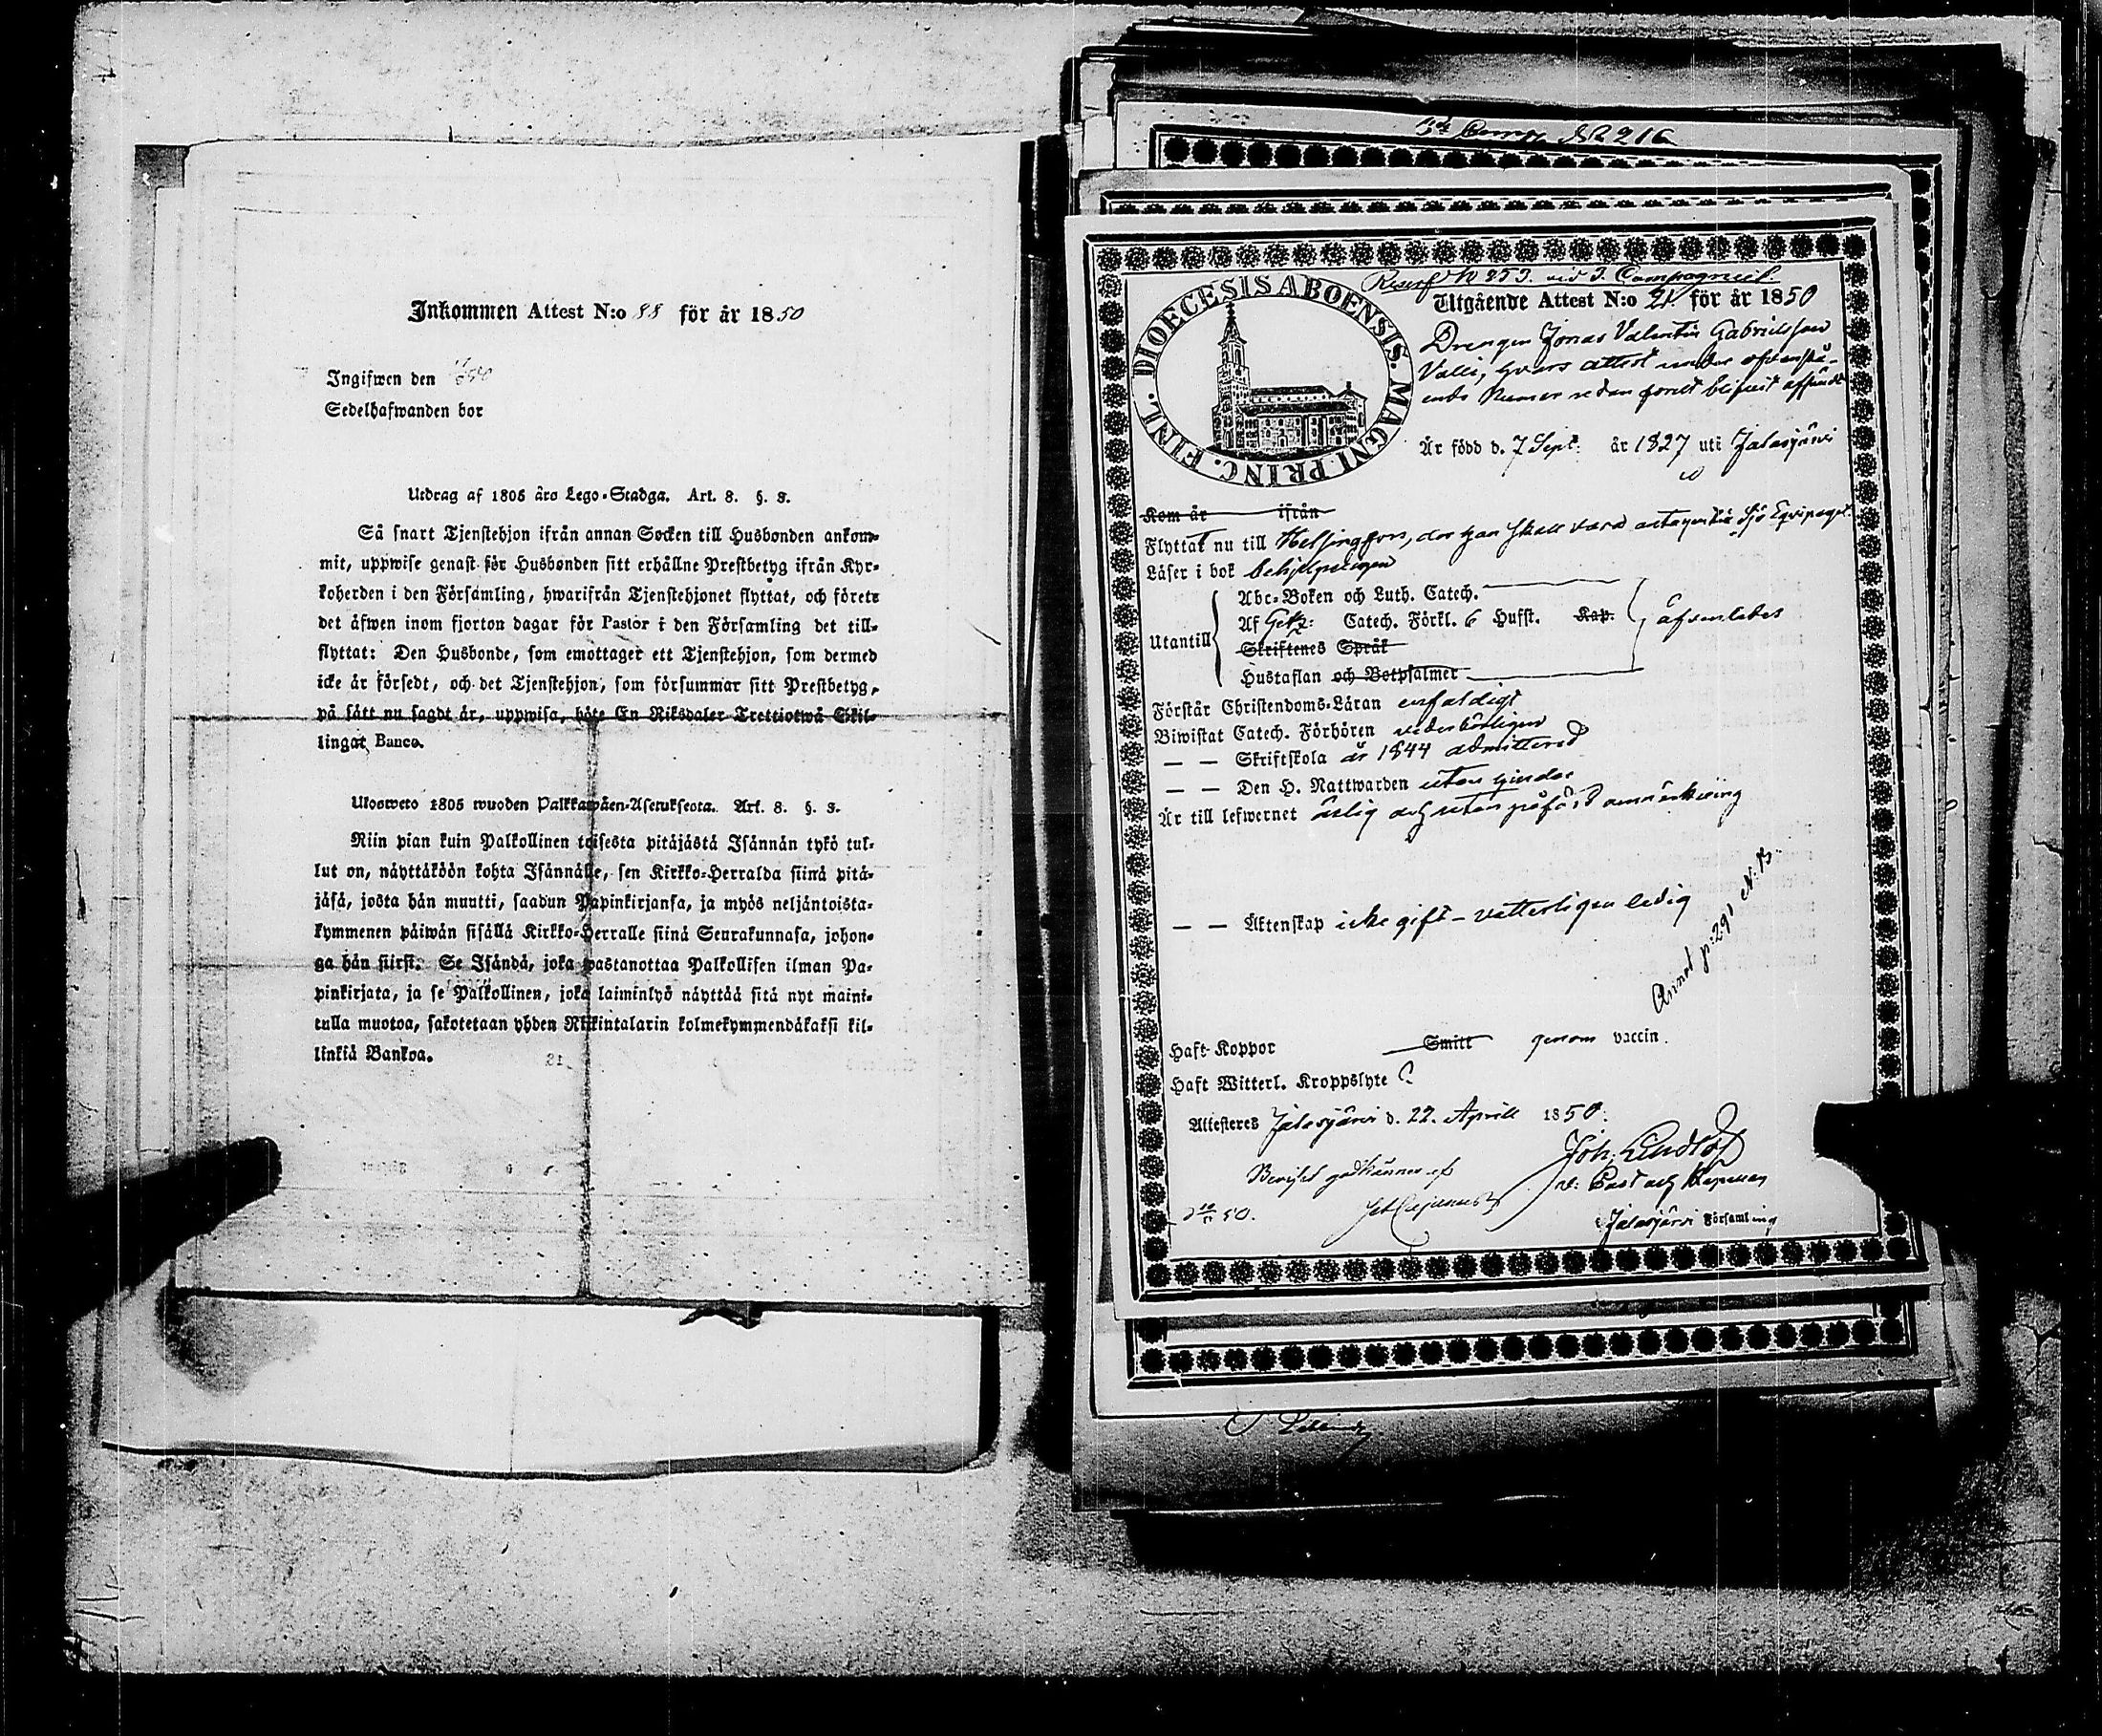 Inkommen Attest N:o 88 för år 1850
Ingifwen den
Sedelhafwanden bor
Utdrag af 1805 års Lego-Stadga. Art. 8. §. 3.
Så snart Tjenstehjon ifrån annan Socken till Husbonden ankom-
mit, uppwise genast för Husbonden sitt erhållne Prestbetyg ifrån Kyr-
koherden i den Församling, hwarifrån Tjenstehjonet flyttat, och förete
det äfwen inom fjorton dagar för Pastor i den Församling det till-
flyttat: Den Husbonde, som emottager ett Tjenstehjon, som dermed
icke är försedt, och det Tjenstehjon, som försummar sitt Prestbetyg,
på sätt nu sagdt är, uppwisa, böte En Riksdaler Trettiotwå Skil-
lingar Banco.
Ulosweto 1805 wuoden Palkkawäen-Asetuksesta. Art. 8. §. 3.
Niin pian kuin Palkollinen toisesta pitäjästä Isännän tykö tul-
lut on, näyttäköön kohta Isännälle, sen Kirkko-Herralda siinä pitä-
jäsä, josta hän muutti, saadun Papinkirjansa, ja myös neljäntoista-
kymmenen päiwän sisällä Kirkko-Herralle siinä Seurakunnasa, johon-
ga hän siirst. Se Isändä, joka wastanottaa Palkollisen ilman Pa-
pinkirjata, ja se Palkollinen, joka laiminlyö näyttää sitä nyt maini-
tulla muotoa, sakotetaan yhden Riikintalarin kolmekymmendäkaksi kil-
linkiä Bankoa.
N 216
DIOECESIS ABOENSIS. MAGNI PRINC. FINL.
N 253. vid 3. Compagniet
Utgående Attest N:o 21 för år 1850
Drengen Jonas Valentin Gabrielsson
Valli, hvars attest under ofvanstå-
ende Numer redan förut blifvit
Är född d. 7 Sept: år 1827 uti Jalasjärvi
Kom år ifrån
Flyttat nu till Helsingfors, der han skall vara antagen till Sjö Equipaget.
Läser i bok behjelpeligen
Utantill
Abc-Boken och Luth. Catech.
Af Catech. Förkl. 6 Hufst. Kap.
Skriftenes Språk
Hustaflan och Botpsalmer
Förstår Christendoms-Läran enfaldigt
Biwistat Catech. Förhören vederbörligen
— — Skriftskola år 1844 admitterad
— — Den H. Nattwarden utan hinder
Är till lefwernet ärlig och utan påförd anmärkning
— — Äktenskap icke gift – vetterligen ledig
Annot p: 291 N: 13.
Haft Koppor Smitt genom vaccin.
Haft Witterl. Kroppslyte
Attesteres Jalasjärvi d. 22. Aprill 1850.
Joh. Lindlöf
v: Past och Kapellan
Beviset godkännes af
50.
i Jalasjärvi Församling